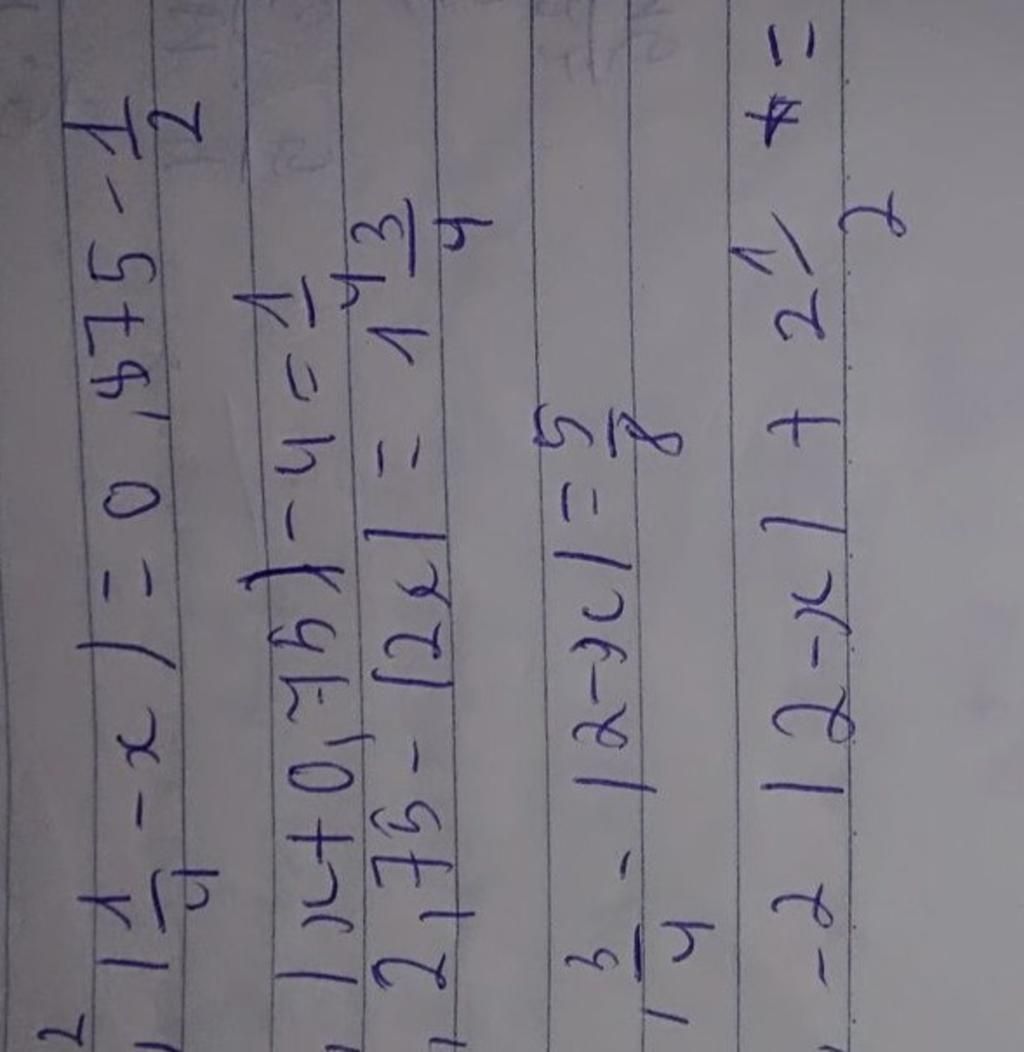 2
|1/4 - x| = 0,875 - 1/2
|x + 0,75| - 4 = 1/4
2,75 - |2x| = 1 3/4
3/4 - |2 - x| = 5/8
-2 |2 - x| + 2 1/2 =